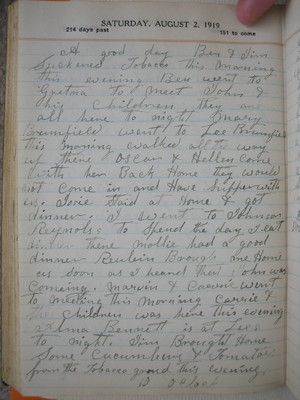 SATURDAY, AUGUST 2, 1919
214 days past 151 to come
A good day Ben & Jim
Suckered Tobacco this Morning
this evening Ben went to
to Meet John &
his Children they are
all here to night Mary
Brumfield went to Lee Brumfield
this Morning walked all the way
up there Oscar & Hellen Come
With her Back Home they would
not Come in and Have Supper with
us. Staid at Home & got
dinner. I went to Johnson
Reynolds to Spend the day I eat
dinner there Mollie had a good
dinner Reubin Brough me Home
as soon as I heard that John was
Comeing. Marvin & Carrie went
to Meeting this Morning Carrie &
The Children was here this evening
Alma Bennett is at Lees
to night. Jim Brought Home
Some Cucumbers & Tomatoes
from the Tobacco ground this evening.